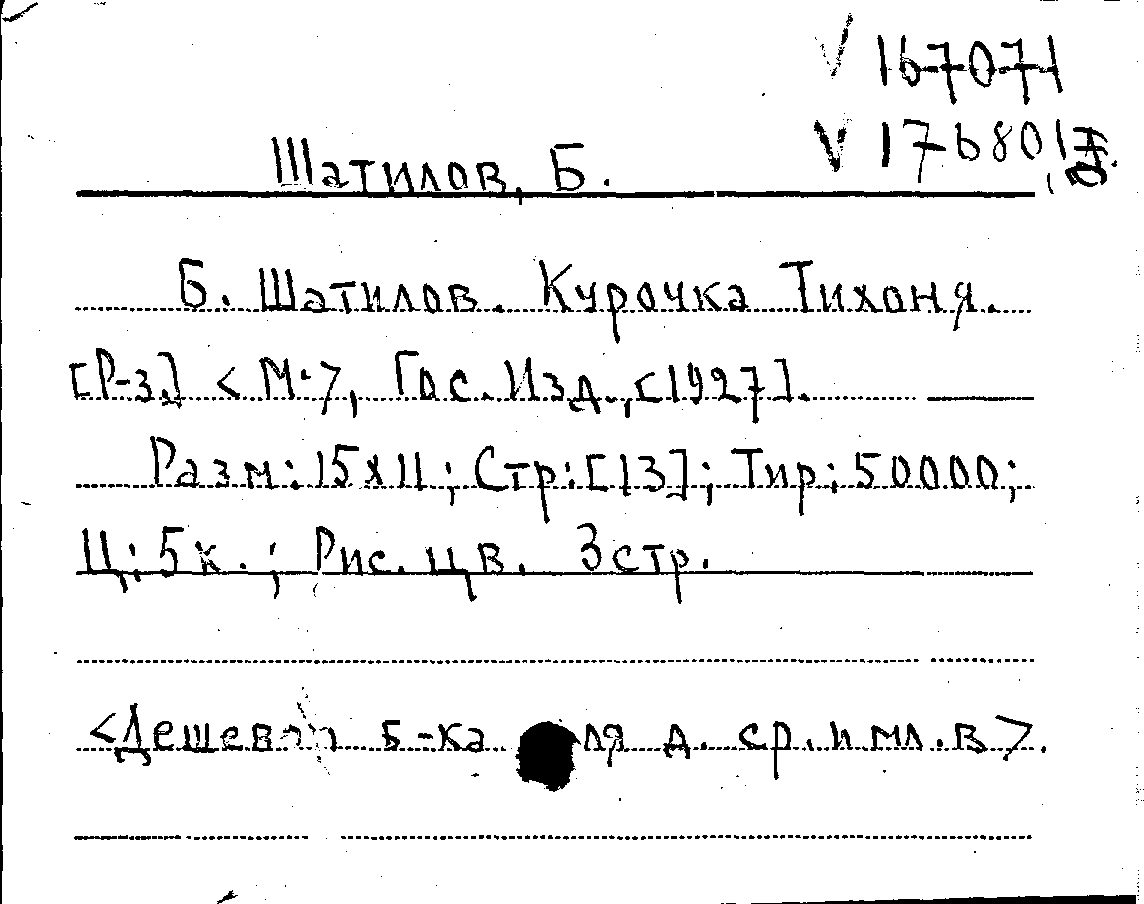 V 167071
V 176801
Шатилов, Б.
Б. Шатилов. Курочка Тихоня.
[Р-з.] <М.>, Гос. Изд., [1927].
Разм: 15х11; Стр: [13]; Тир: 50000;
Ц: 5 к. ; Рис. цв. 3 стр.
<Дешевая б-ка для д. ср. и мл. в>.